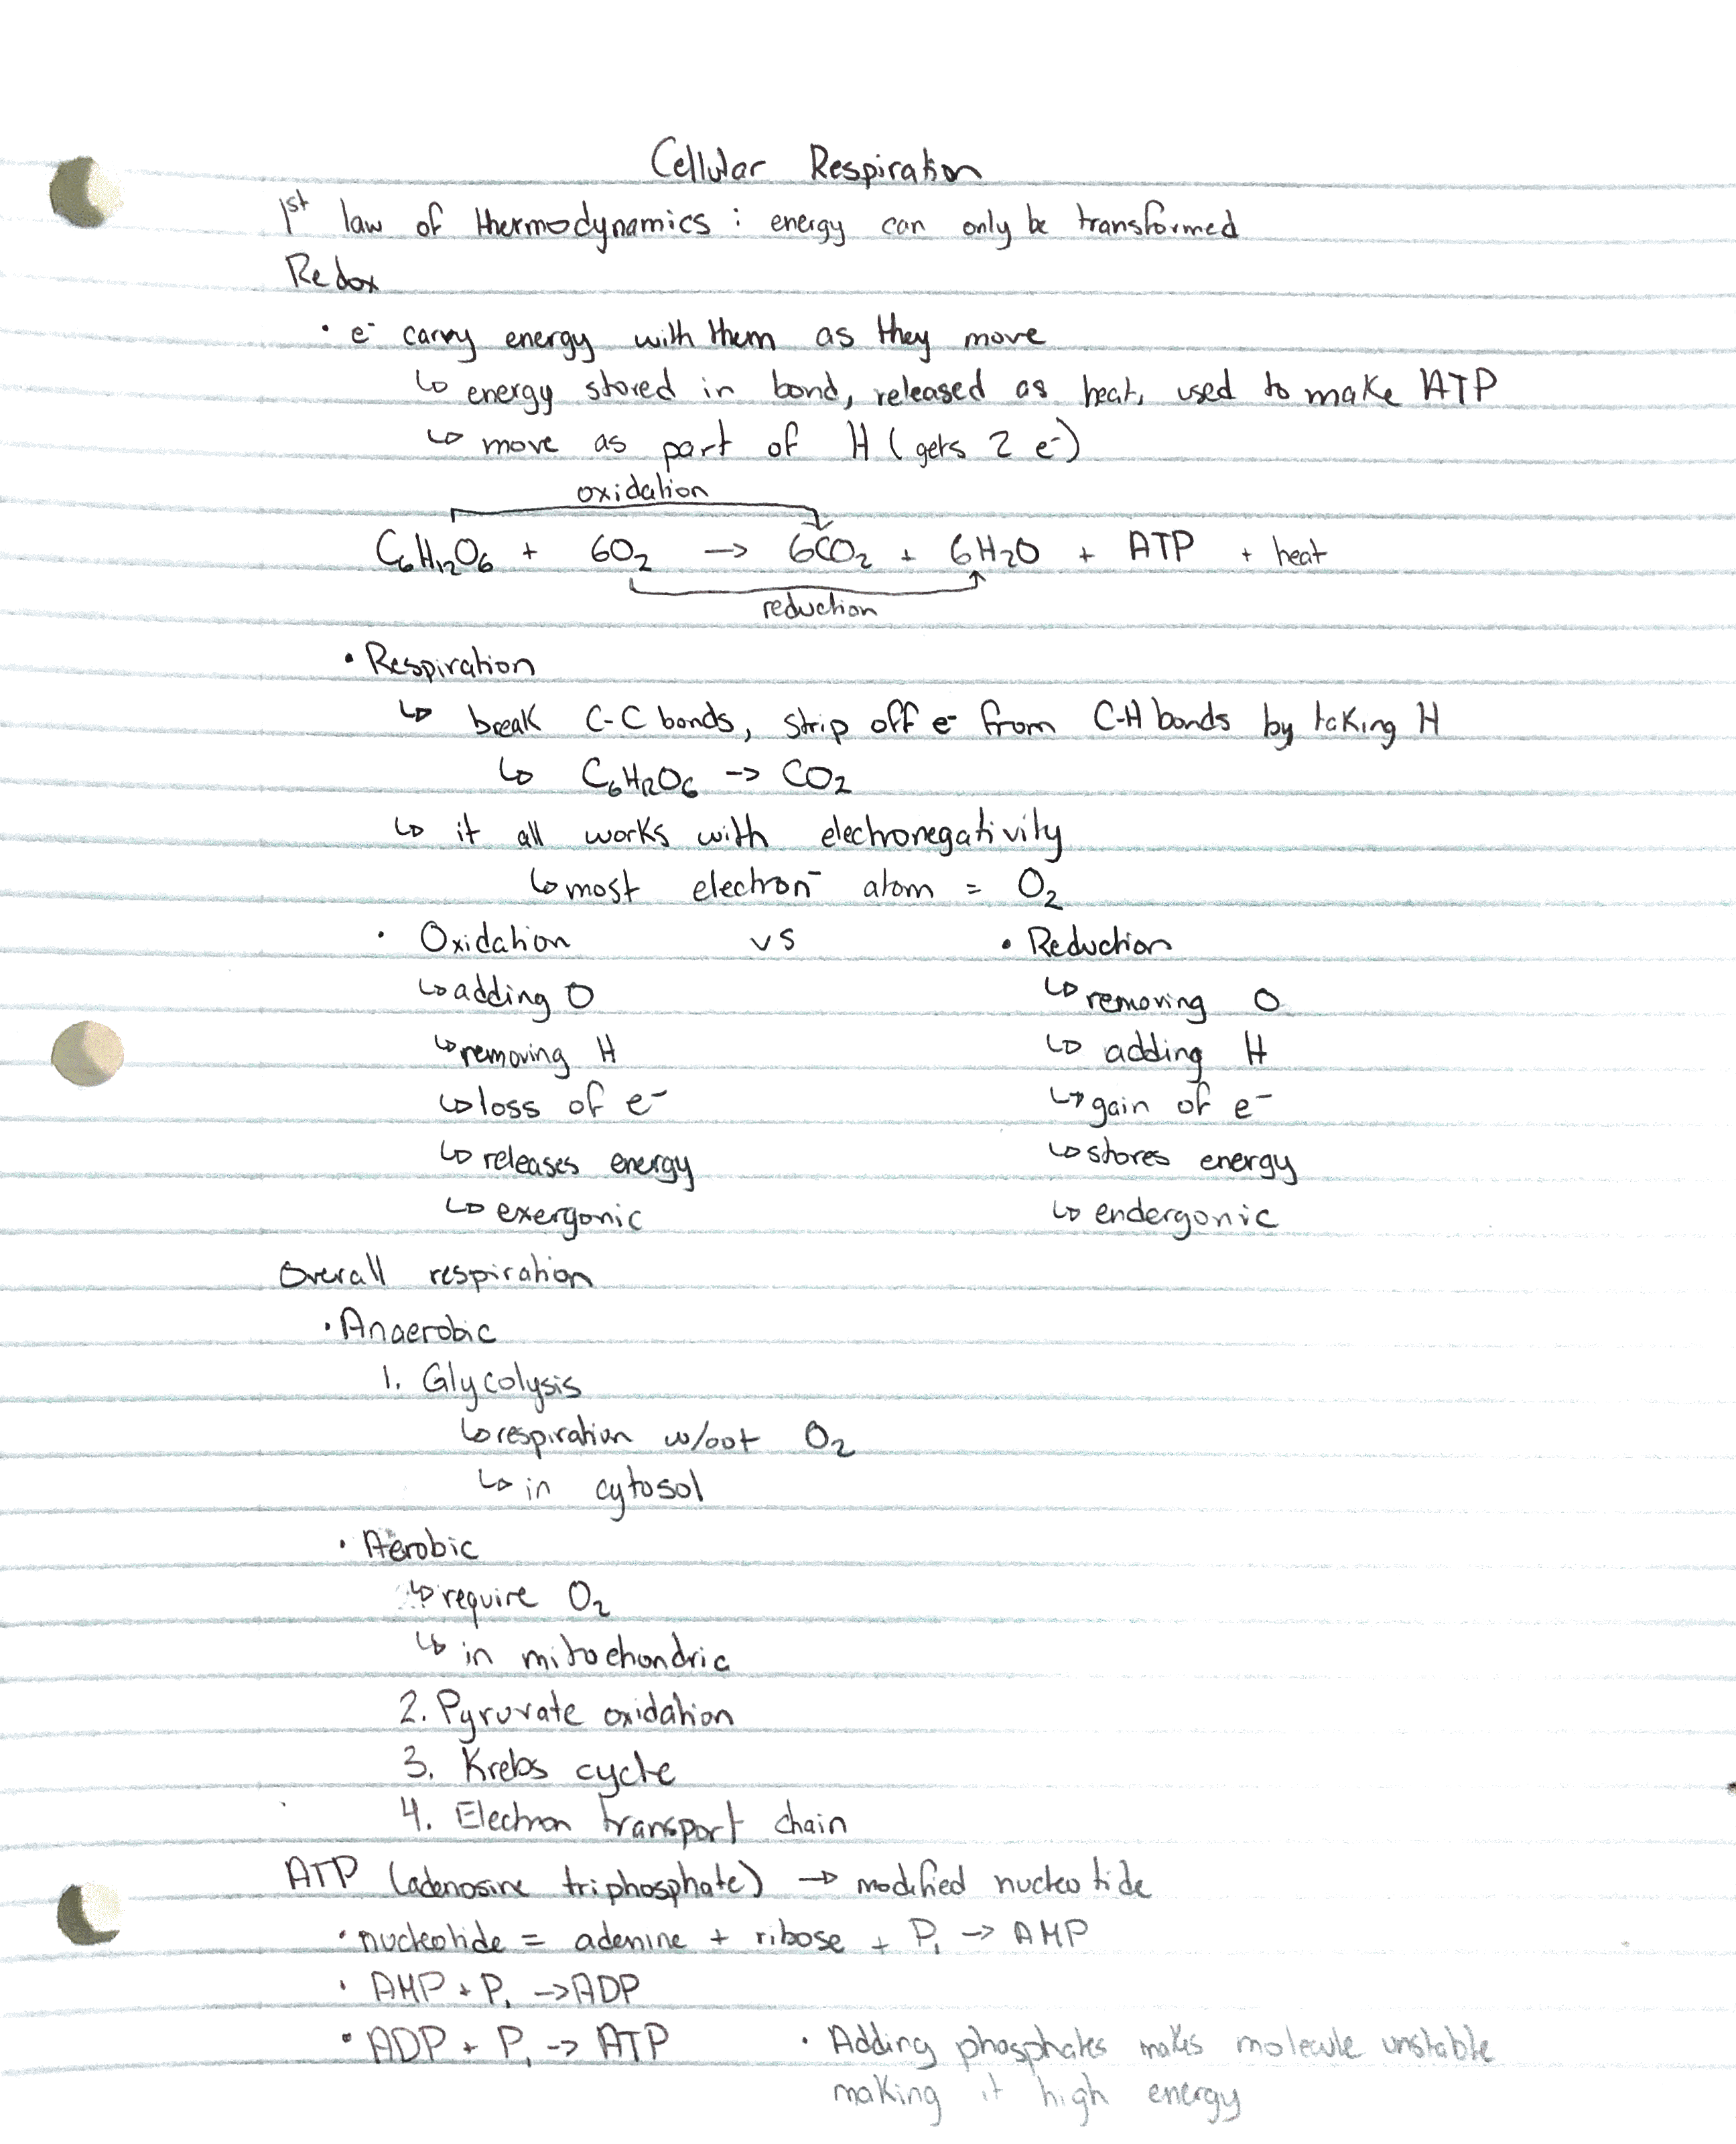 Cellular Respiration
1st law of thermodynamics : energy can only be transformed
Redox
• e⁻ carry energy with them as they move
↳ energy stored in bond, released as heat, used to make ATP
↳ move as part of H (gets 2 e⁻)
oxidation
C₆H₁₂O₆ + 6O₂ → 6CO₂ + 6H₂O + ATP + heat
reduction
• Respiration
↳ break C-C bonds, strip off e⁻ from C-H bonds by taking H
↳ C₆H₁₂O₆ → CO₂
↳ it all works with electronegativity
↳ most electron⁻ atom = O₂
• Oxidation vs • Reduction
↳ adding O ↳ removing O
↳ removing H ↳ adding H
↳ loss of e⁻ ↳ gain of e⁻
↳ releases energy ↳ stores energy
↳ exergonic ↳ endergonic
Overall respiration
• Anaerobic
1. Glycolysis
↳ respiration w/out O₂
↳ in cytosol
• Aerobic
↳ require O₂
↳ in mitochondria
2. Pyruvate oxidation
3. Krebs cycle
4. Electron transport chain
ATP (adenosine triphosphate) → modified nucleotide
• nucleotide = adenine + ribose + Pᵢ → AMP
• AMP + Pᵢ → ADP
• ADP + Pᵢ → ATP • Adding phosphates makes molecule unstable
making it high energy